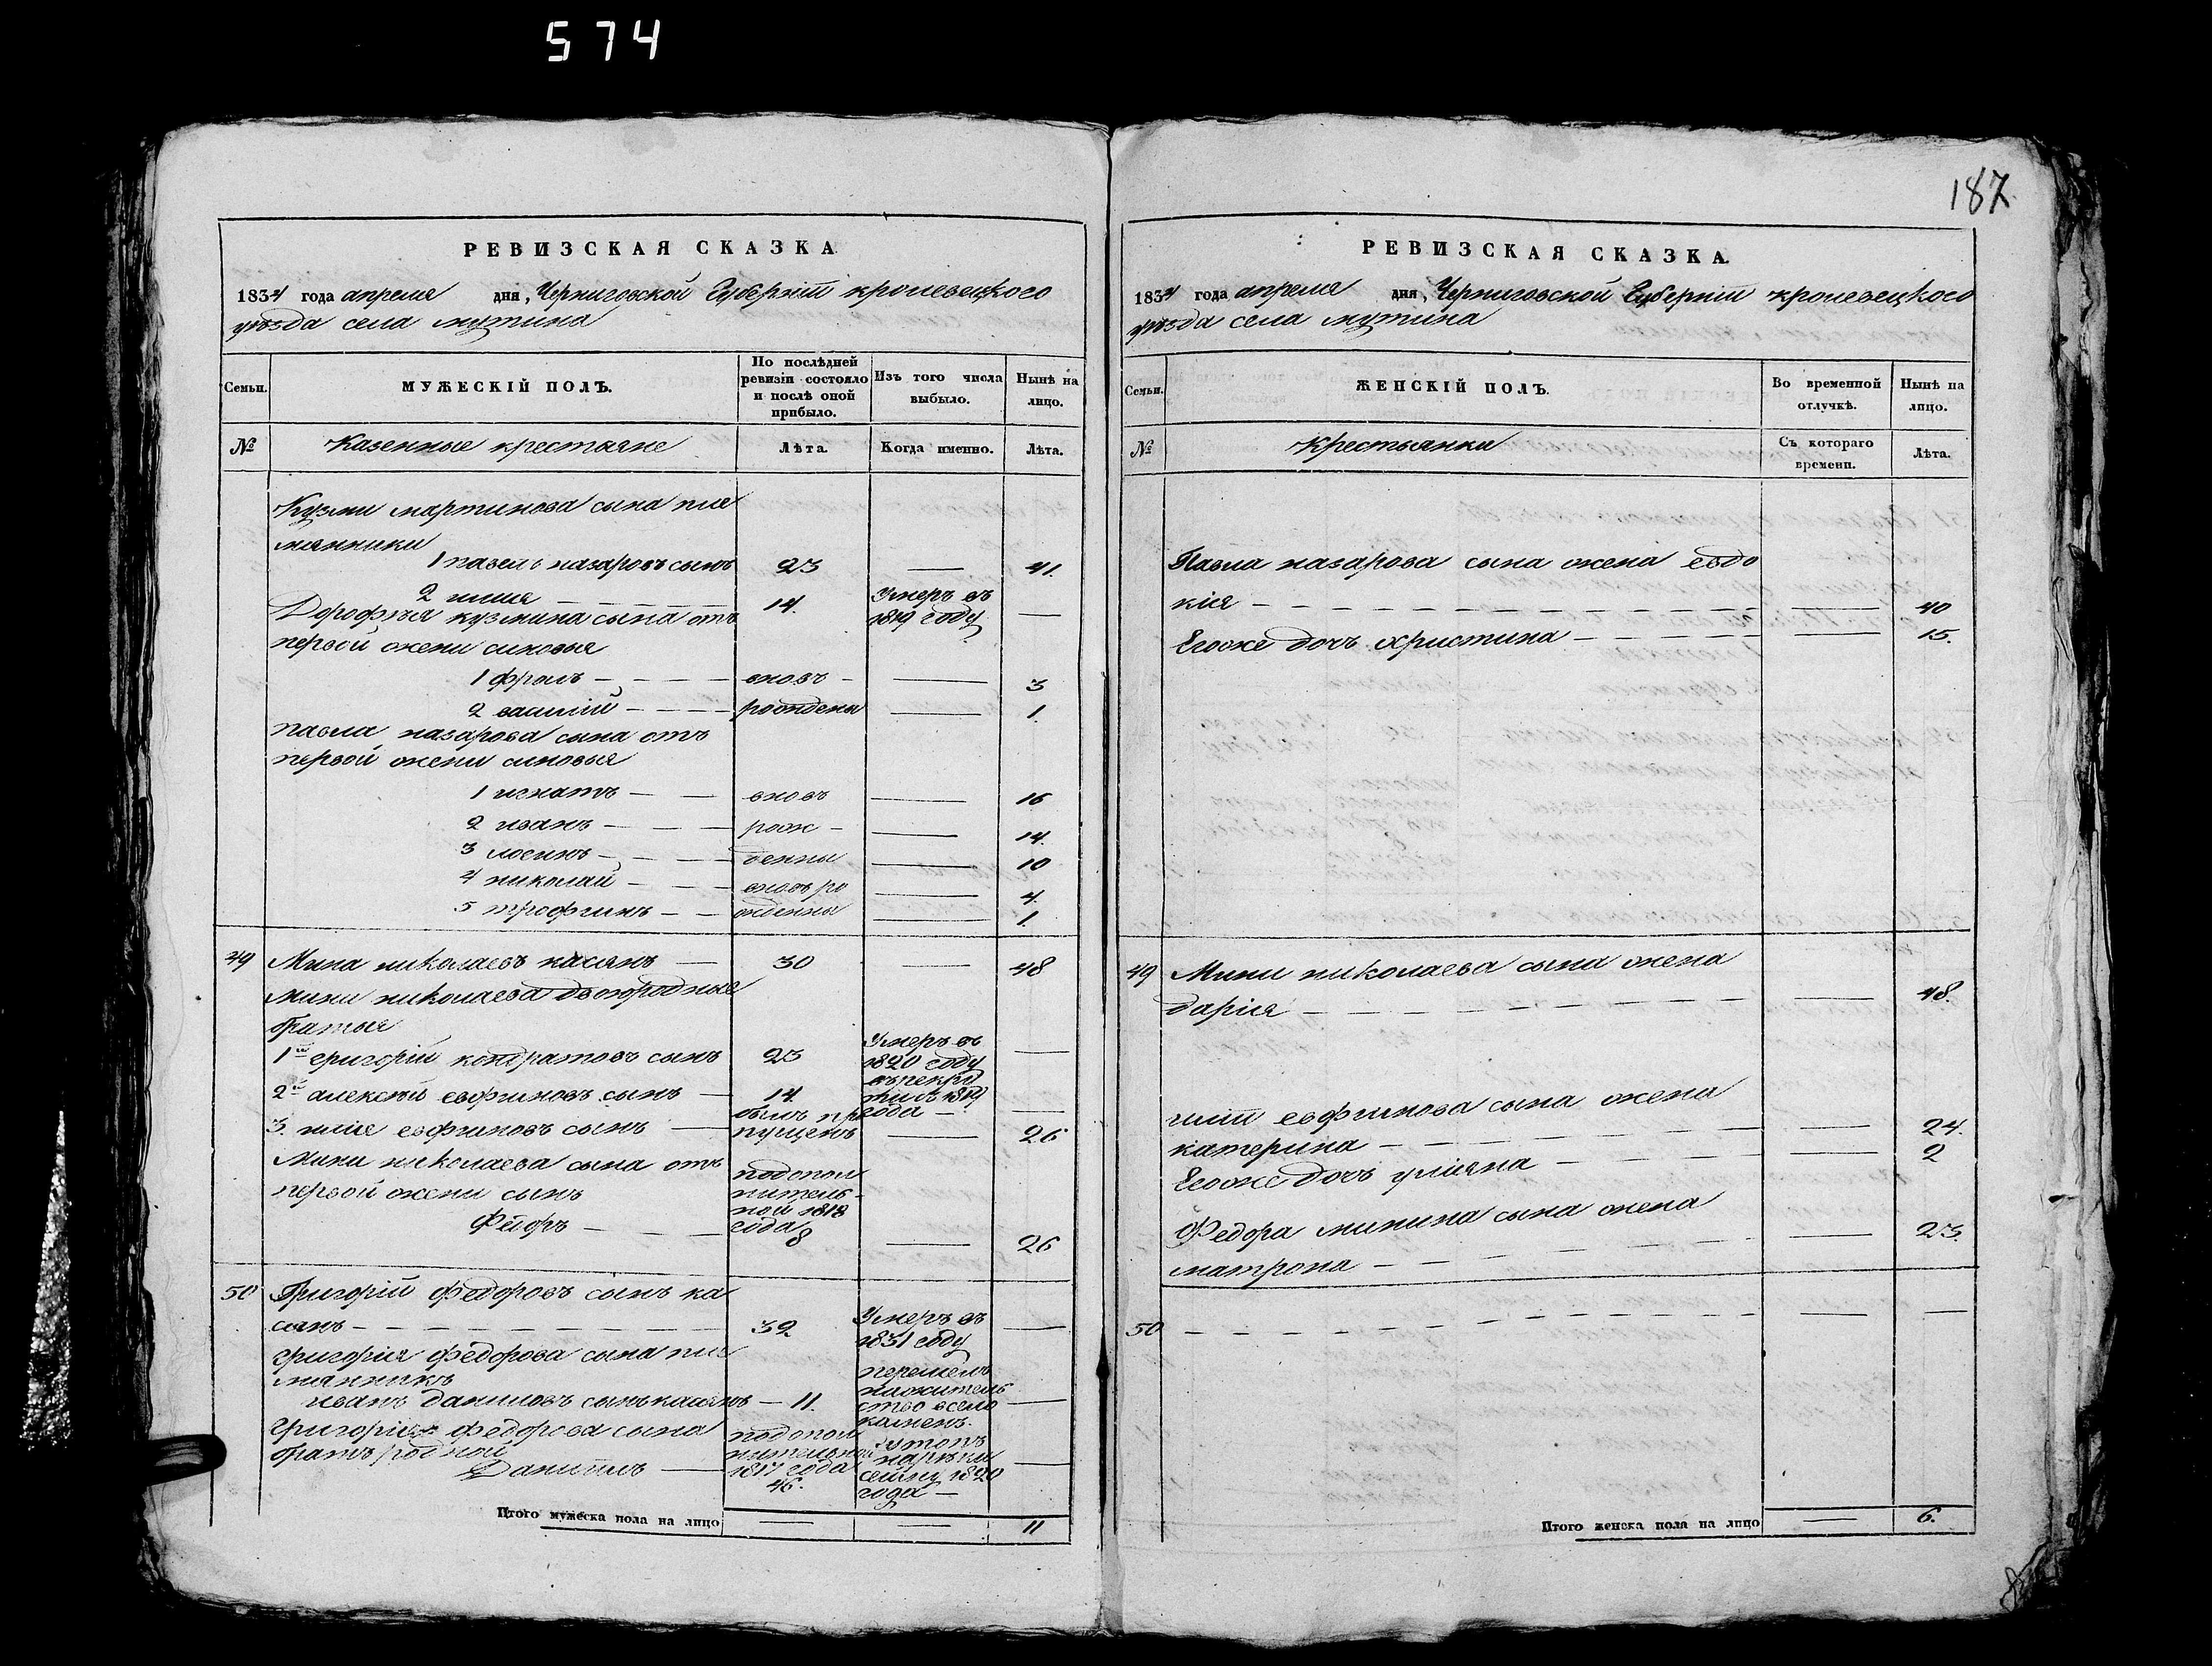 574
187
РЕВИЗСКАЯ СКАЗКА
1834 года апреля дня, Черниговской Губерніи кролевецкого
уѣзда села мутина
Семьи.
МУЖЕСКІЙ ПОЛЪ.
По послѣдней ревизіи состояло и послѣ оной прибыло.
Изъ того числа выбыло.
Нынѣ на лицо.
№
Казенные крестьяне
Лѣта.
Когда именно.
Лѣта.
Кузми мартинова сына пле
мянники
1 павелъ назаровъ сынъ 23 — 41.
2 илия — — — 14. Умеръ въ 1819 году —
Дорофѣя кузмина сына отъ
первой жени синовья
1 фролъ — — — вновъ — — 3
2 василій — — — рожденны — 1.
павла назарова сына отъ
первой жени синовья
1 игнатъ — — вновъ — 16
2 иванъ — — — рож — — 14.
3 логинъ — — — денны — 10
4 николай — — — вновъ ро — 4.
5 трофимъ — — жденны — 1.
49 Мина николаевъ касянъ — 30 — 48
мини николаева двоюродные
братья
1й григорій кондратовъ сынъ 23 Умеръ въ 1820 году —
2й алексѣй евфимовъ сынъ — 14. въ рекруты 1819 года — —
3. илия евфимовъ сынъ — былъ пропущенъ — 26
мини николаева сына отъ
первой жени сынъ
Фёдоръ — — — по дополнительной 1818 года 8 — 26
50 Григорій федоровъ сынъ ка
сянъ — — — 32 Умеръ въ 1831 году —
григорія федорова сына пле
мянникъ
иванъ даниловъ сынъ касянъ — 11. перешелъ на жительство в село камень. —
григорія федорова сына
братъ родной
Даниилъ — по дополнительной 1817 года 46. 1820 года — —
Итого мужеска пола на лицо — — 11
РЕВИЗСКАЯ СКАЗКА.
1834 года апреля дня, Черниговской Губерніи кролевецкого
уѣзда села мутина
Семьи.
ЖЕНСКІЙ ПОЛЪ.
Во временной отлучкѣ.
Нынѣ на лицо.
№
Крестьянки
Съ котораго времени.
Лѣта.
Павла назарова сына жена евдо
кія — — — 40
Егоже дочь христина — — — 15.
49 Мини николаева сына жена
дарія — — — 48.
иліи евфимова сына жена
катерина — — — 24.
Егоже дочь уліяна — — — 2
Федора минина сына жена
матрона — — — 23.
50 — — — — —
Итого женска пола на лицо — 6.